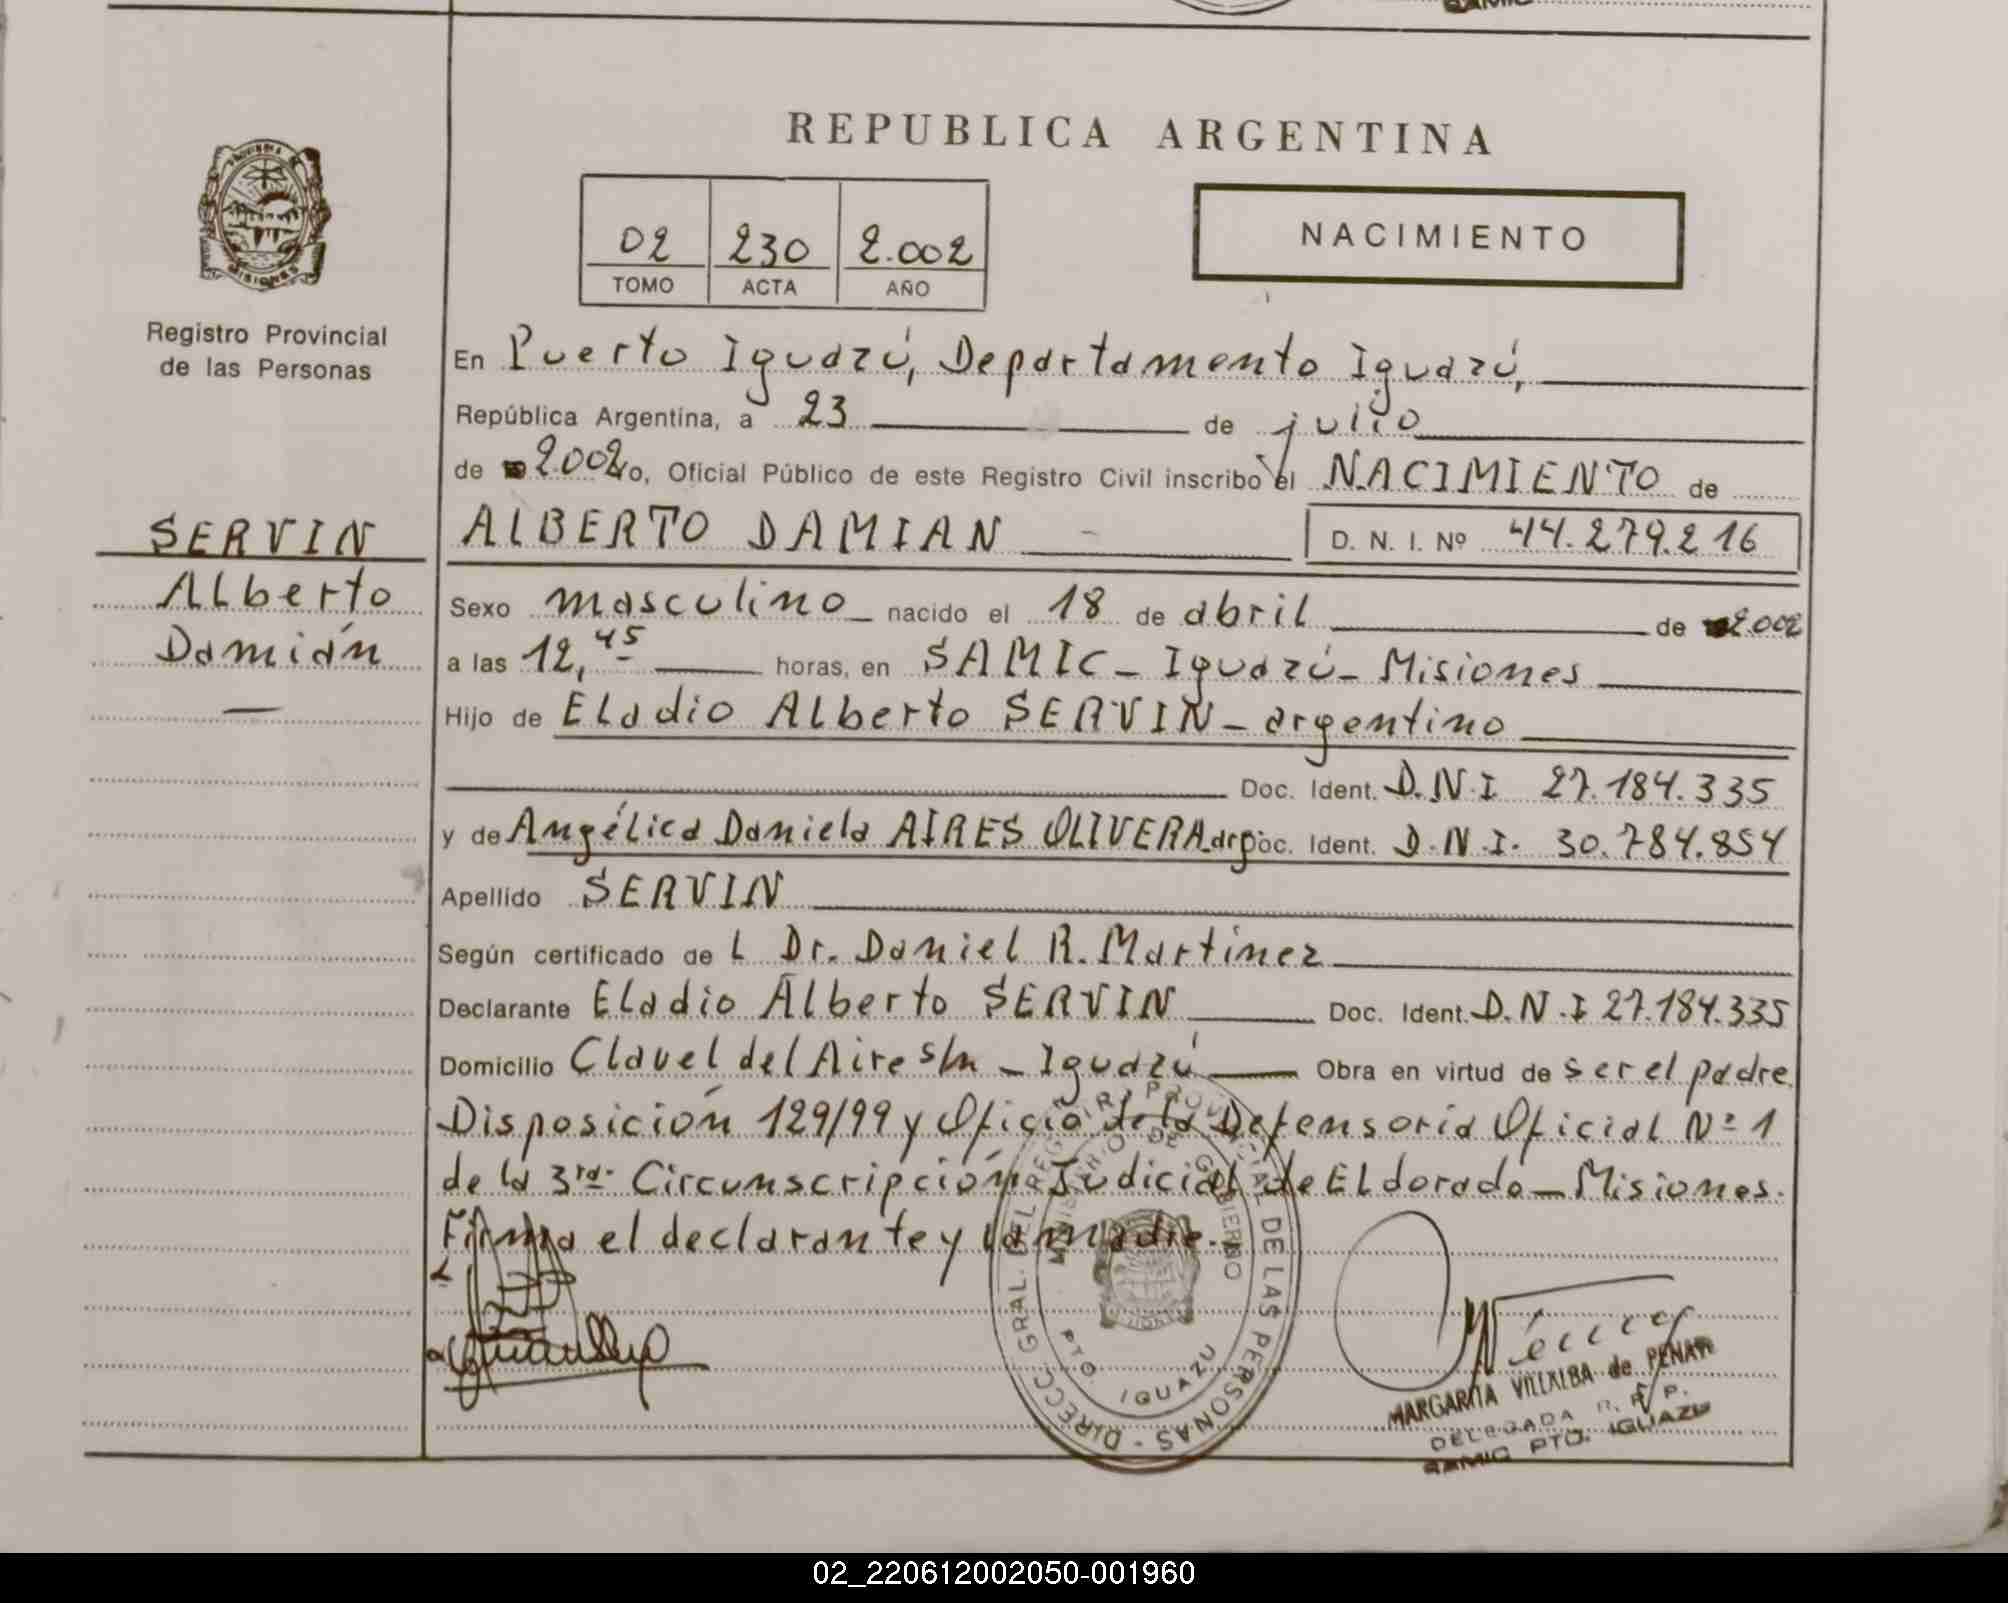 REPUBLICA ARGENTINA
02 230 2.002
TOMO ACTA AÑO
NACIMIENTO
PROVINCIA DE
MISIONES
Registro Provincial
de las Personas
SERVIN
Alberto
Damián
—
En Puerto Iguazú, Departamento Iguazú,
República Argentina, a 23 de julio
de 2002 yo, Oficial Público de este Registro Civil inscribo el NACIMIENTO de
ALBERTO DAMIAN D. N. I. Nº 44.279.216
Sexo masculino nacido el 18 de abril de 2002
a las 12,45 horas, en SAMIC - Iguazú - Misiones
Hijo de Eladio Alberto SERVIN - argentino
Doc. Ident. D.N.I 27.184.335
y de Angélica Daniela AIRES OLIVERA arg Doc. Ident. D.N.I. 30.784.854
Apellido SERVIN
Según certificado de L Dr. Daniel R. Martinez
Declarante Eladio Alberto SERVIN Doc. Ident. D.N.I 27.184.335
Domicilio Clavel del Aire s/n - Iguazú Obra en virtud de ser el padre.
Disposición 129/99 y Oficio de la Defensoría Oficial Nº 1
de la 3ra. Circunscripción Judicial de Eldorado - Misiones.
Firma el declarante y la madre.
DIRECC. GRAL. DEL REGISTRO PROVINCIAL DE LAS PERSONAS -
MINISTERIO DE GOBIERNO
PTO. IGUAZU
MARGARITA VILLALBA de
DELEGADA R. P. P.
SAMIC PTO. IGUAZU
02_220612002050-001960